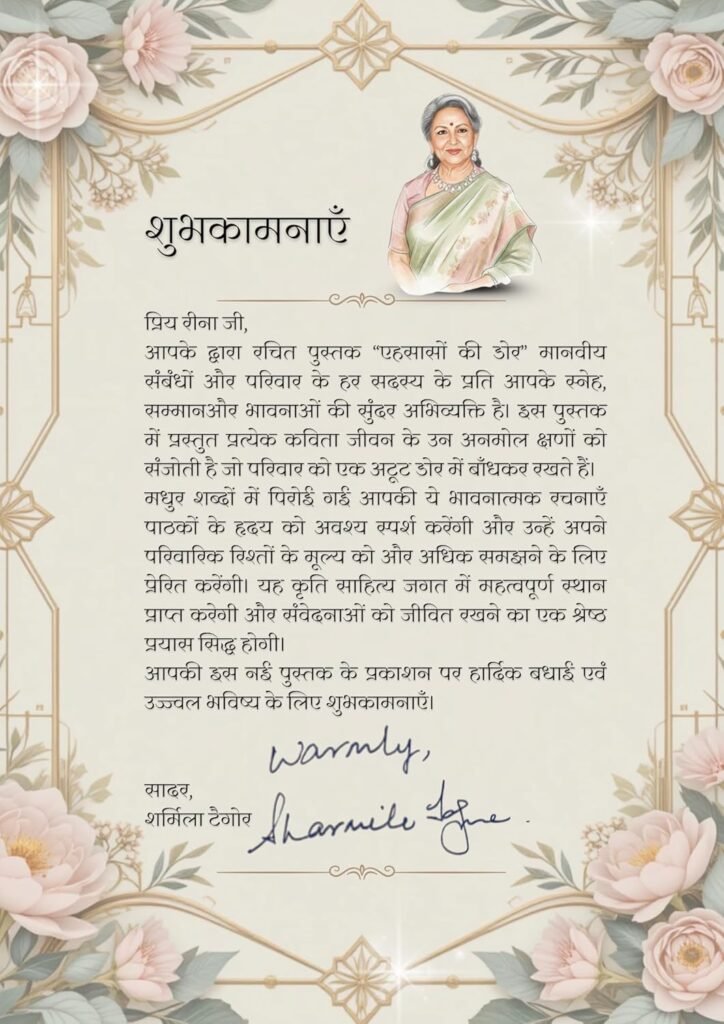 शुभकामनाएँ
प्रिय रीना जी,
आपके द्वारा रचित पुस्तक “एहसासों की डोर” मानवीय
संबंधों और परिवार के हर सदस्य के प्रति आपके स्नेह,
सम्मानऔर भावनाओं की सुंदर अभिव्यक्ति है। इस पुस्तक
में प्रस्तुत प्रत्येक कविता जीवन के उन अनमोल क्षणों को
संजोती है जो परिवार को एक अटूट डोर में बाँधकर रखते हैं।
मधुर शब्दों में पिरोई गई आपकी ये भावनात्मक रचनाएँ
पाठकों के हृदय को अवश्य स्पर्श करेंगी और उन्हें अपने
परिवारिक रिश्तों के मूल्य को और अधिक समझने के लिए
प्रेरित करेंगी। यह कृति साहित्य जगत में महत्वपूर्ण स्थान
प्राप्त करेगी और संवेदनाओं को जीवित रखने का एक श्रेष्ठ
प्रयास सिद्ध होगी।
आपकी इस नई पुस्तक के प्रकाशन पर हार्दिक बधाई एवं
उज्ज्वल भविष्य के लिए शुभकामनाएँ।
Warmly,
सादर,
शर्मिला टैगोर Sharmila Tagore.